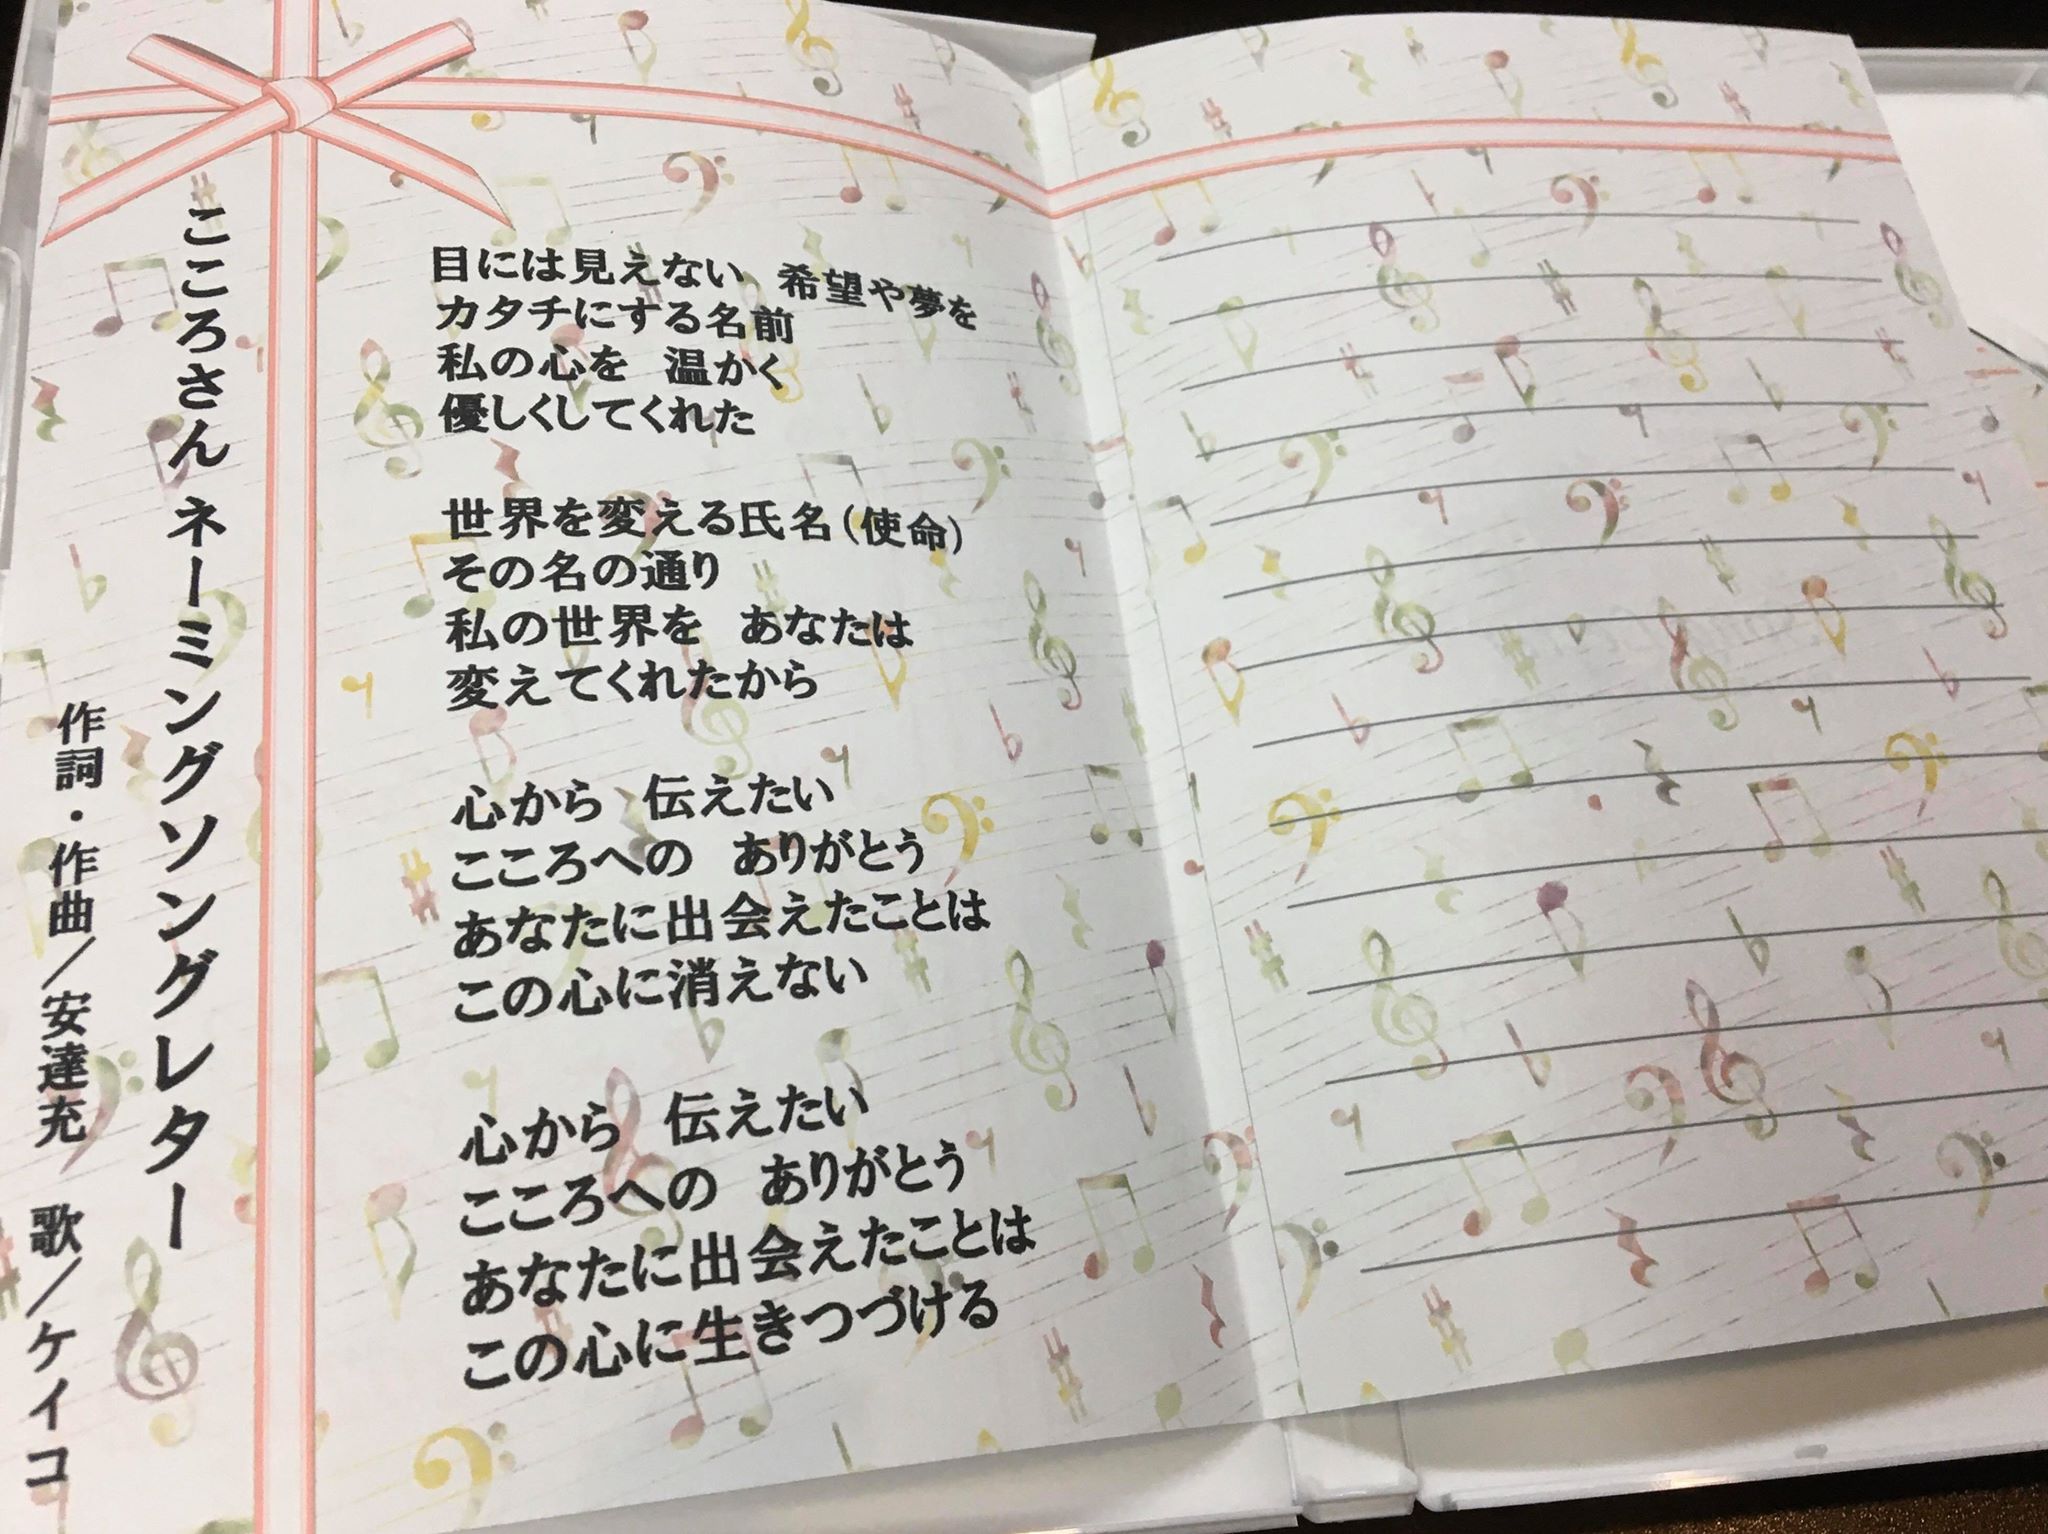 こころさん ネーミングソングレター
作詞・作曲/安達充 歌/ケイコ
目には見えない 希望や夢を
カタチにする名前
私の心を 温かく
優しくしてくれた
世界を変える氏名(使命)
その名の通り
私の世界を あなたは
変えてくれたから
心から 伝えたい
こころへの ありがとう
あなたに出会えたことは
この心に消えない
心から 伝えたい
こころへの ありがとう
あなたに出会えたことは
この心に生きつづける